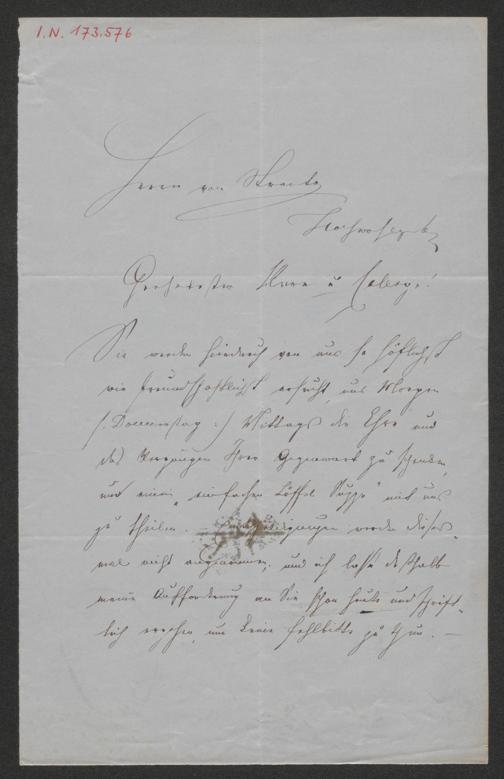 I.N. 173.576
Herrn von Strantz
Hochwohlgeb
Geehrtester Herr u College!
Sie werden hiedurch von uns so höflichst
wie freundschaftlichst ersucht, uns Morgen
(: Donnerstag :) Mittags die Ehre und
das Vergnügen Ihrer Gegenwart zu schenken,
und einen "einfachen Löffel Suppe" mit uns
zu theilen. werden dieses-
mal nicht angenommen, und ich lasse deßhalb
meine Aufforderung an Sie schon heute und schrift-
lich ergehen, um keine Fehlbitte zu thun. —